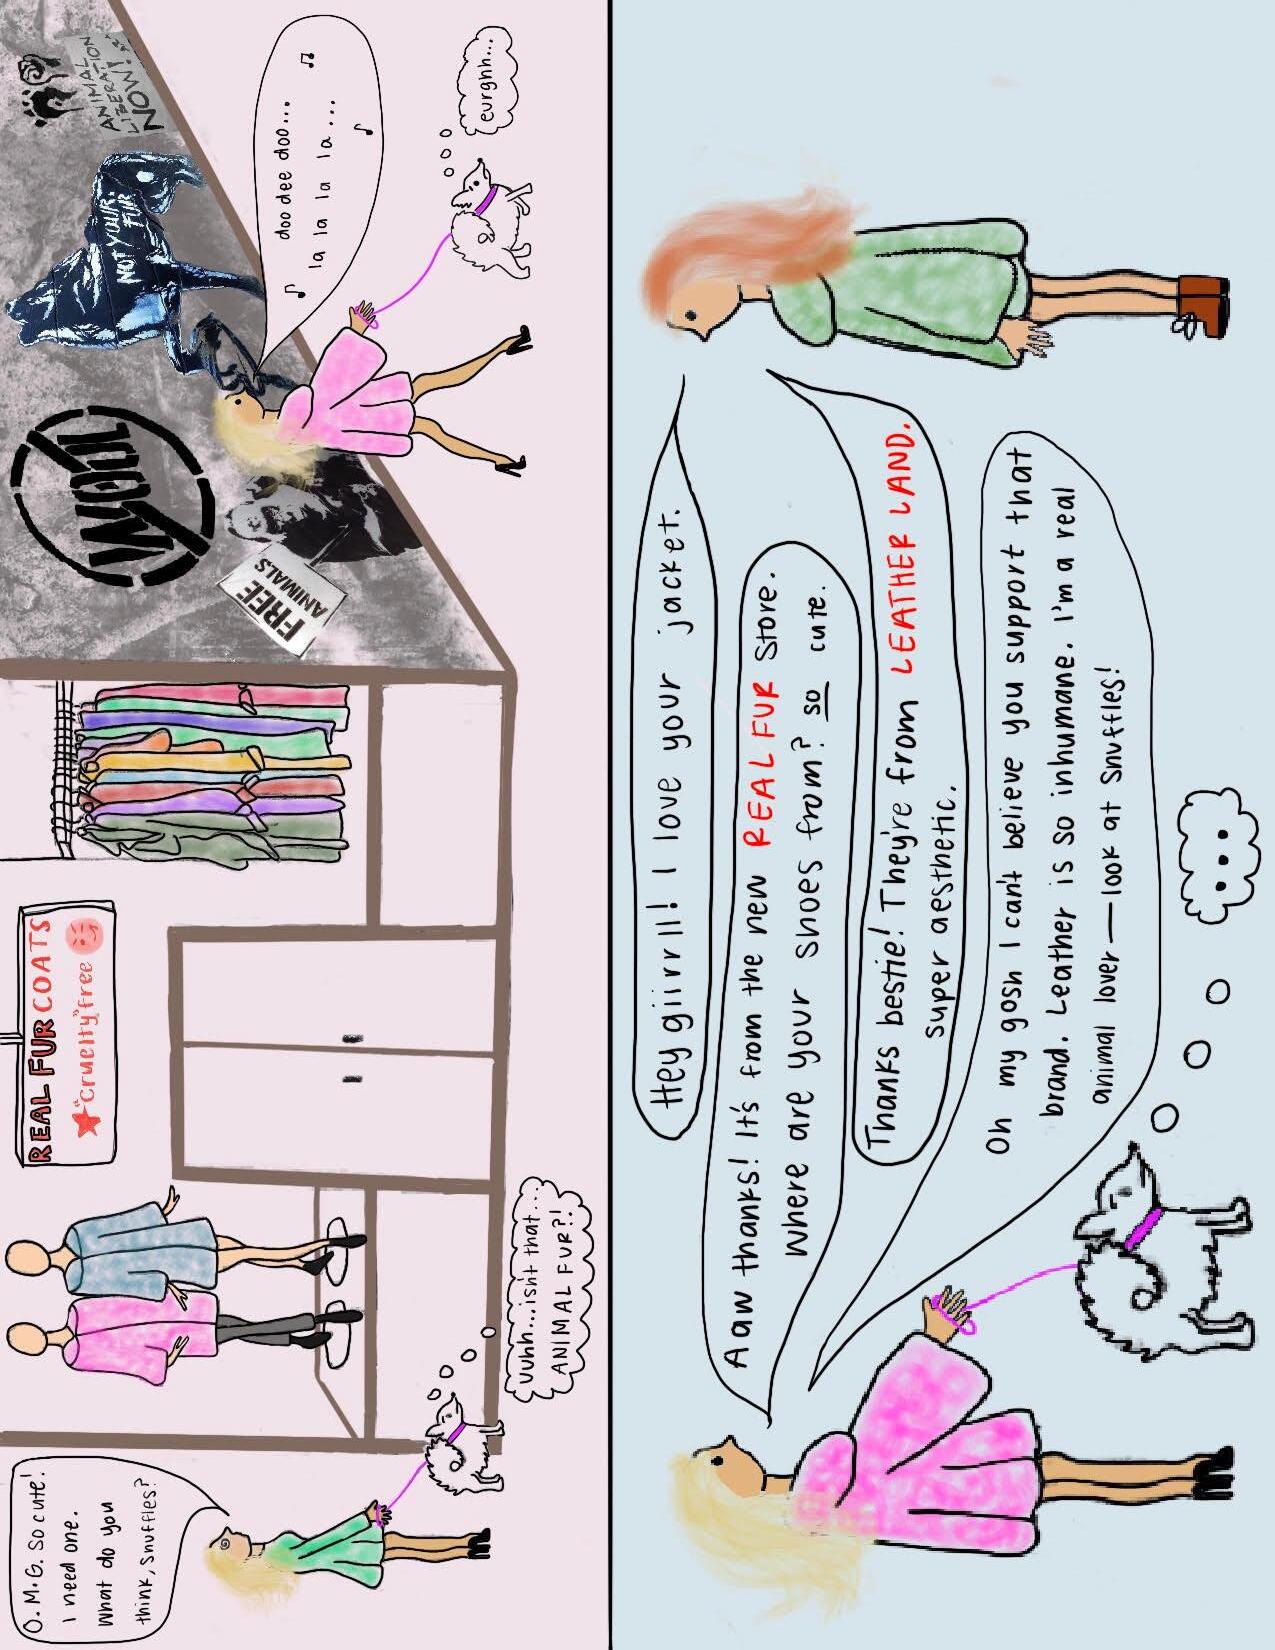 O.M.G. SO cute!
I need one.
What do you
think, Snuffles?
uuhh...isnt that...
ANIMAL FUR?!
REAL FUR COATS
"Cruelty" free
FREE
ANIMALS
WOOL
NOT YOUR
FUR
ANIMAL
LIBERATION
NOW!
doo dee doo...
la la la la la...
eurghh...
Hey giirrll! I love your jacket.
Aaw thanks! It's from the new REAL FUR Store.
Where are your shoes from? so cute.
Thanks bestie! They're from LEATHER LAND.
super aesthetic.
Oh my gosh I can't believe you support that
brand. Leather is so inhumane. I'm a real
animal lover—look at Snuffles!
...